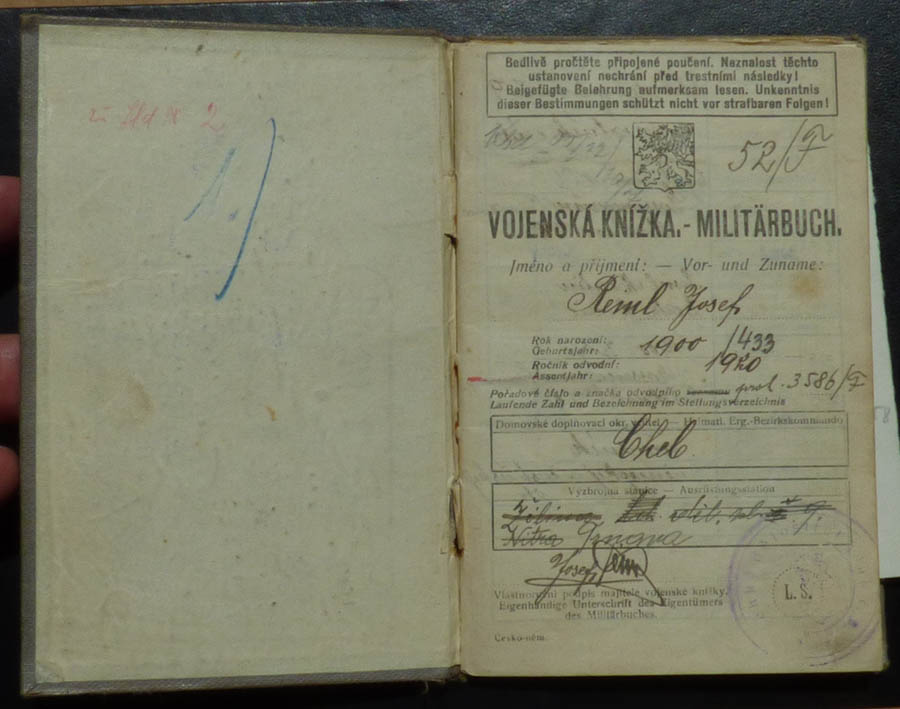 2
1)
Bedlivě pročtěte připojené poučení. Neznalost těchto
ustanovení nechrání před trestními následky!
Beigefügte Belehrung aufmerksam lesen. Unkenntnis
dieser Bestimmungen schützt nicht vor strafbaren Folgen!
52/F
VOJENSKÁ KNÍŽKA.-MILITÄRBUCH.
Jméno a příjmení: — Vor- und Zuname:
Reml Josef
Rok narození:
Geburtsjahr: 1900 /433
Ročník odvodní: 1920
Assentjahr:
Pořadové číslo a značka odvodního prot. 3586/F
Laufende Zahl und Bezeichnung im Stellungsverzeichnis
Domovské doplňovací okr. velitel — Heimatl. Erg.-Bezirkskommando
Cheb
Výzbrojná stanice — Ausrüstungsstation
Žilina
Nitra Trnava
Josef
Vlastnoruční podpis majitele vojenské knížky.
Eigenhändige Unterschrift des Eigentümers
des Militärbuches.
L. S.
Česko-něm.